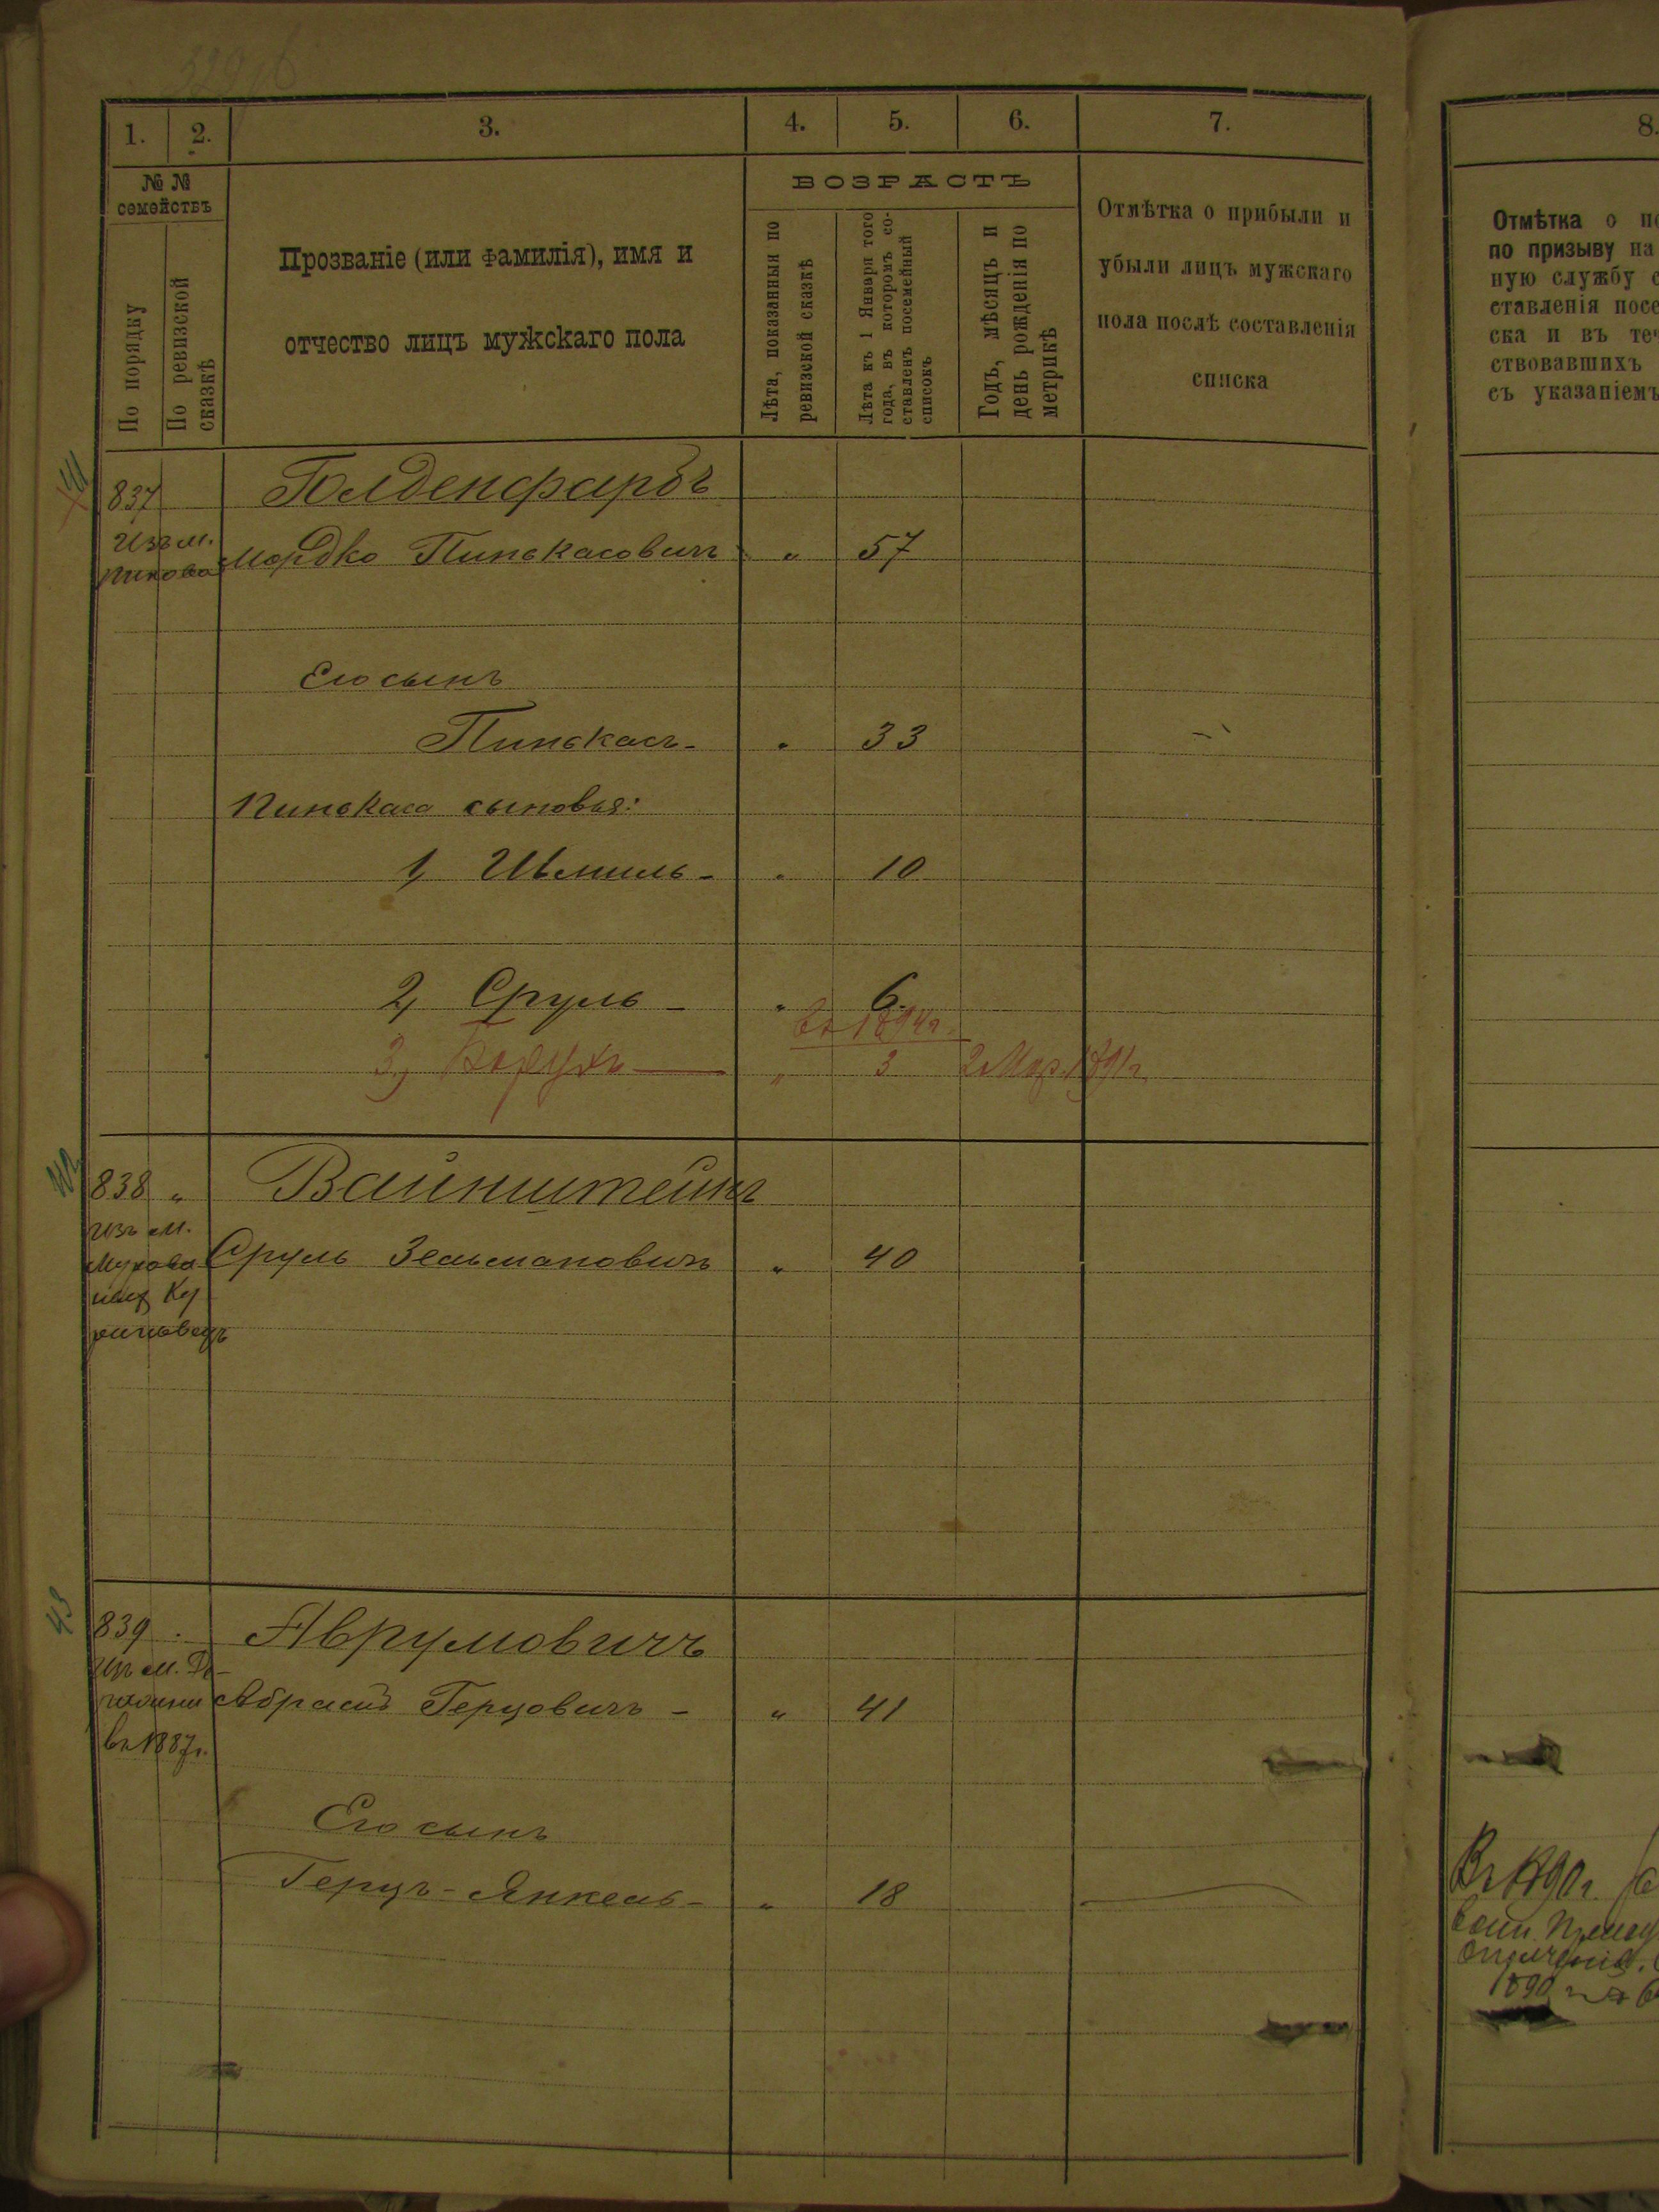 1. 2. 3. 4. 5. 6. 7.
№ №
семействъ
По порядку
По ревизской
сказкѣ
Прозваніе (или фамилія), имя и
отчество лицъ мужскаго пола
ВОЗРАСТЪ
Лѣта, показанныя по
ревизской сказкѣ
Лѣта къ 1 Января того
года, въ которомъ со-
ставленъ посемейный
списокъ
Годъ, мѣсяцъ и
день рожденія по
метрикѣ
Отмѣтка о прибыли и
убыли лицъ мужскаго
пола послѣ составленія
списка
837 Голденфарбъ
Изъ м.
Пикова Мордко Пинькасовичъ " 57
Его сынъ
Пинькасъ - " 33
Пинькаса сыновья:
1, Шмиль - " 10
2, Сруль - " 6
въ 1894г.
3, Борухъ — " 3 2 Мар. 1891г.
838 " Вайнштейнъ
изъ м.
Сруль Зельмановичъ " 40
43
839 Аврумовичъ
Изъ м.
Абрамъ Герцовичъ - " 41
въ 1887г.
Его сынъ
Герцъ-Янкель - " 18
8.
Отмѣтка о
по призыву на
ную службу
ставленія посе
ска и въ те
ствовавшихъ
съ указаніемъ
Въ 1890г.
1890